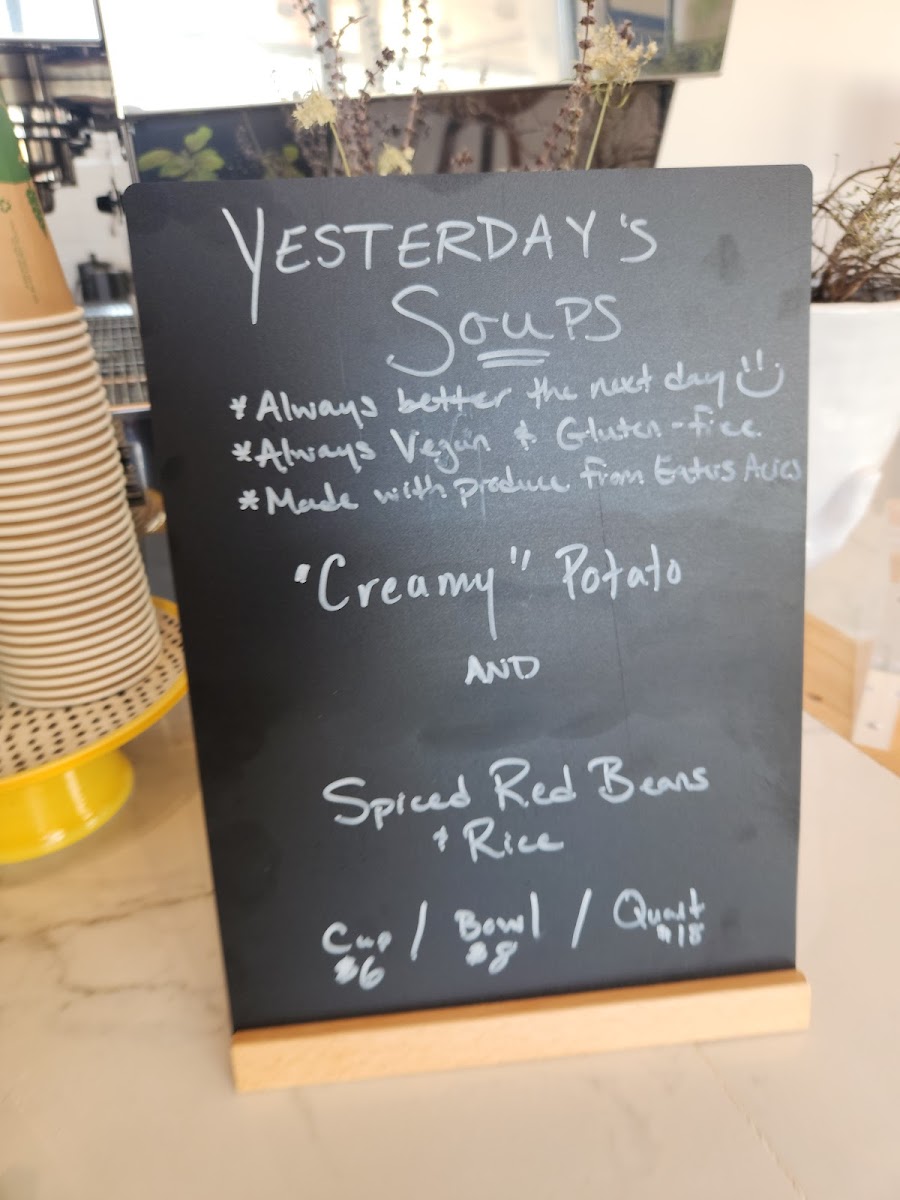 YESTERDAY'S
SOUPS
*Always better the next day
*Always Vegan & Gluten-free
*Made with produce from Eaters Acres
"Creamy" Potato
AND
Spiced Red Beans
+ Rice
Cup / Bowl / Quart
$6 $8 $18